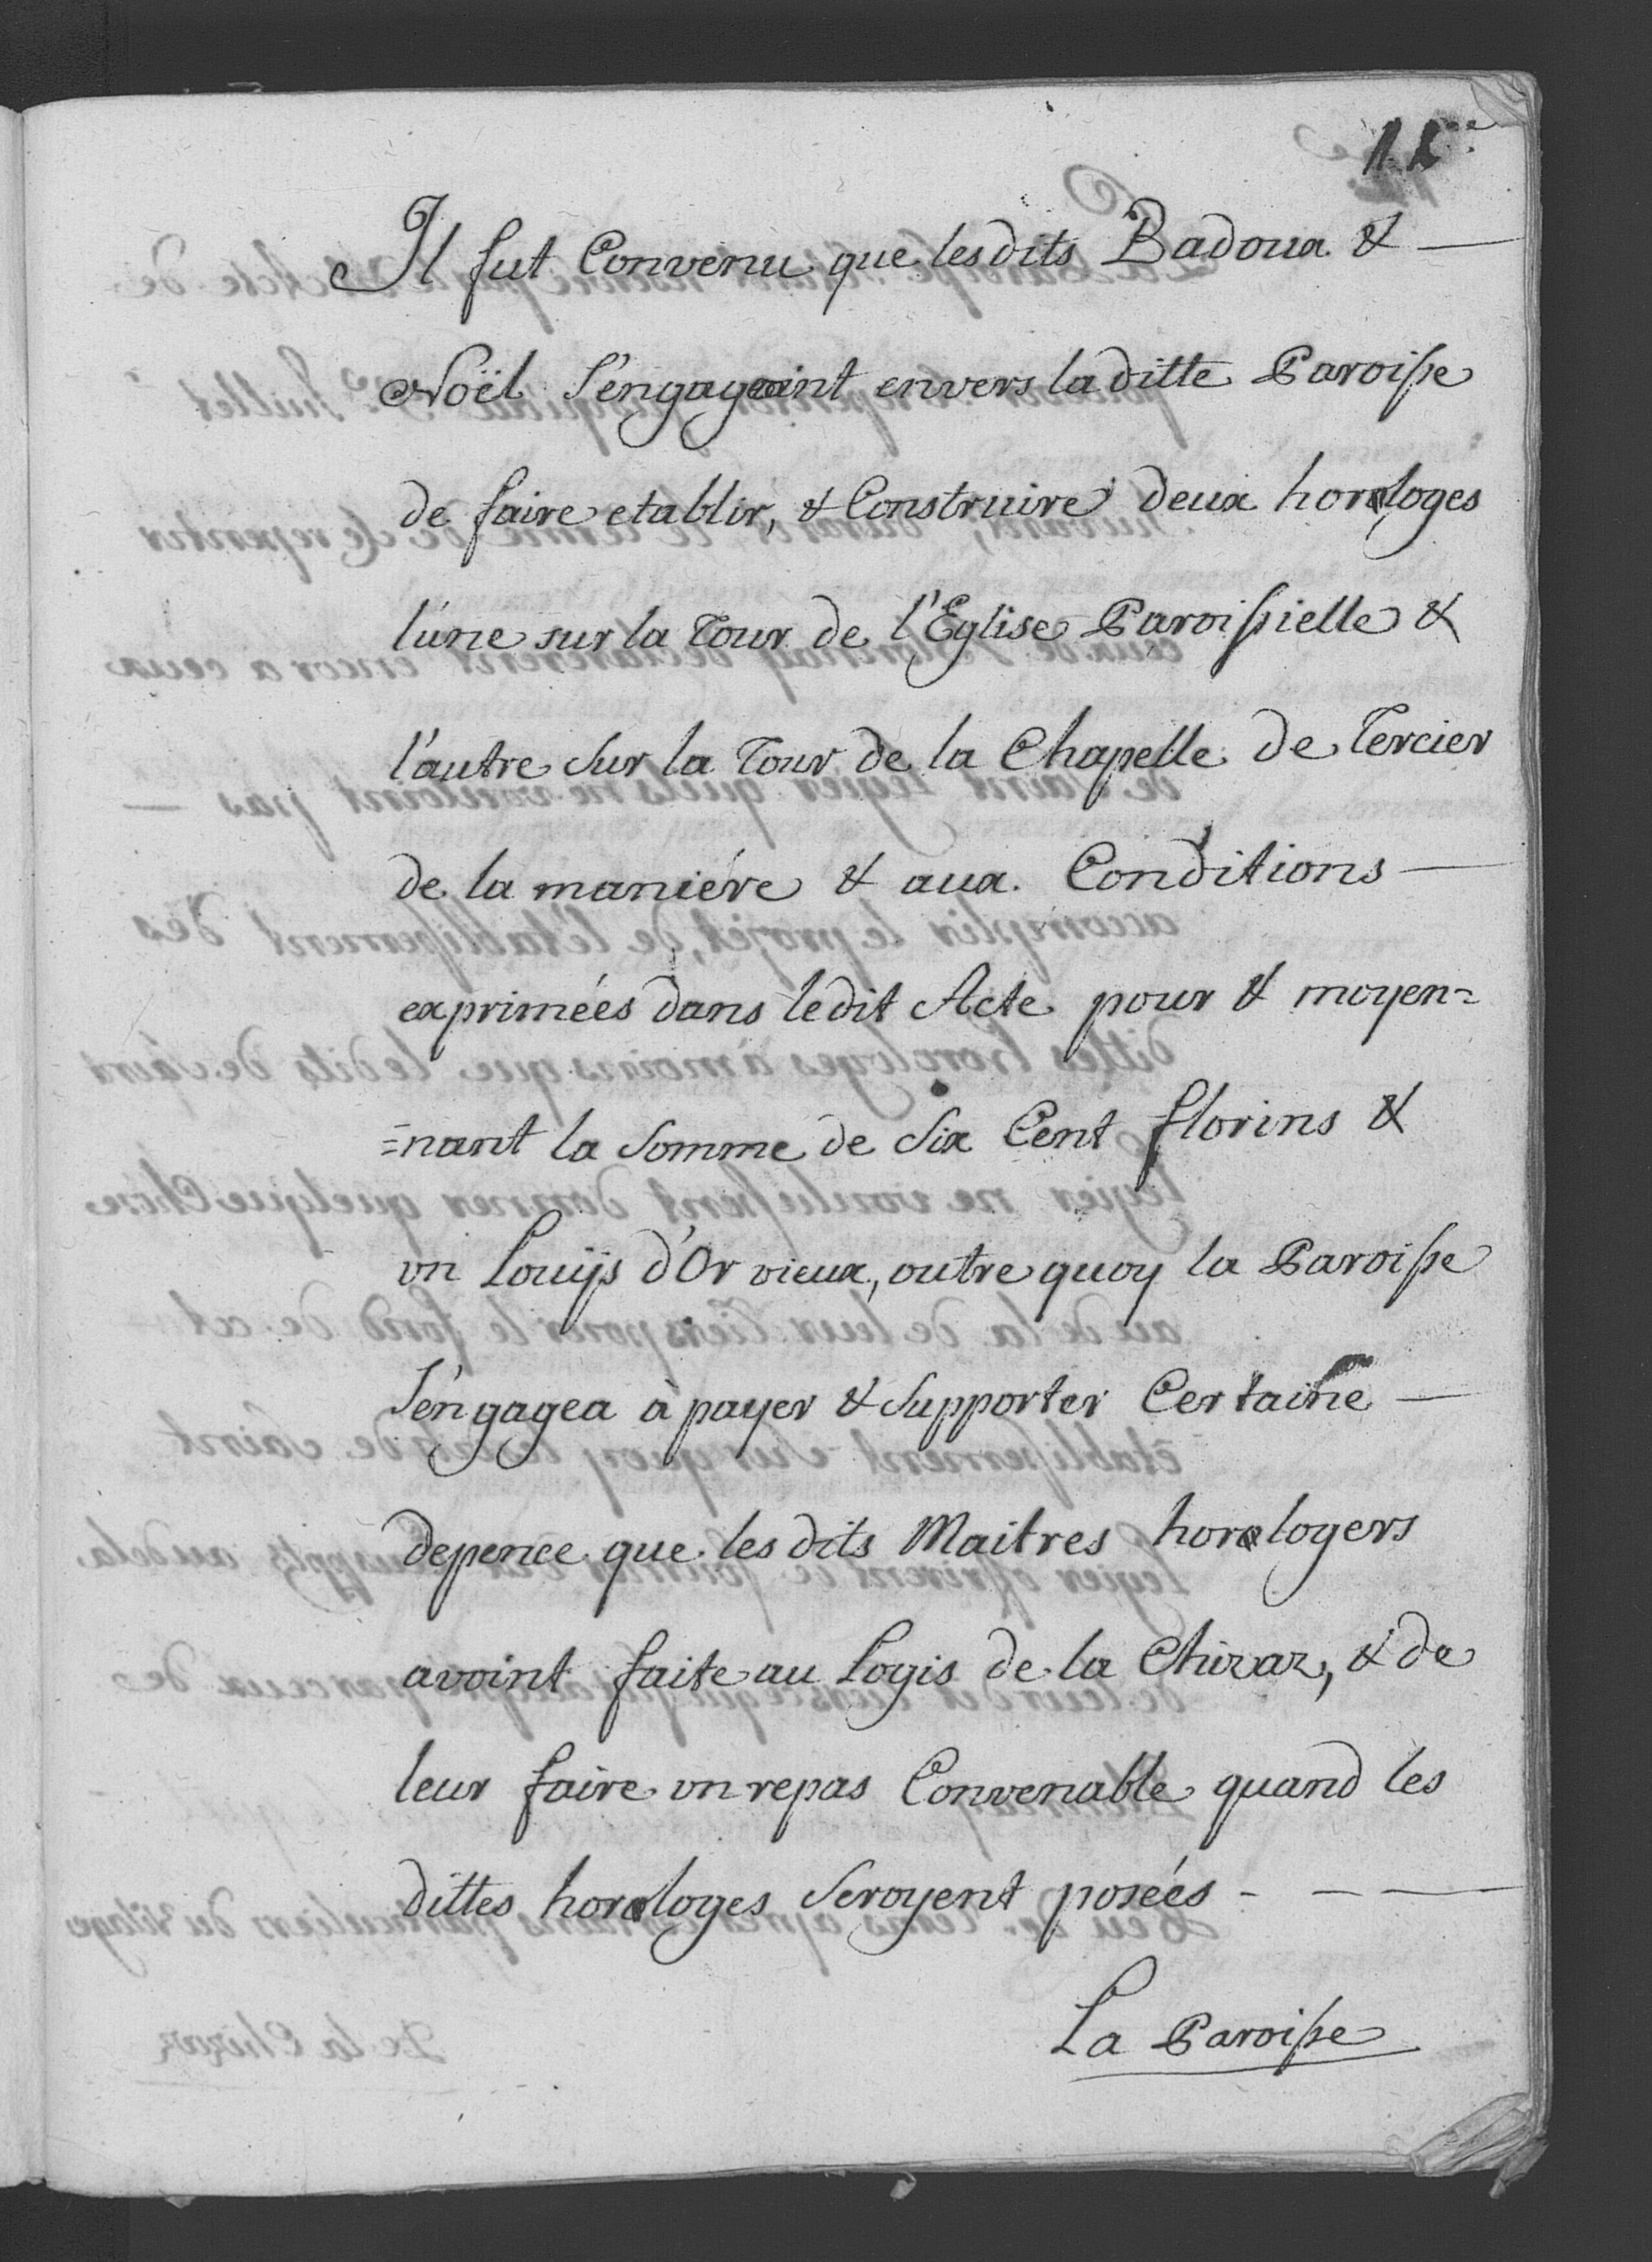 Il fut Convenu que lesdits Badoux &
Noël S'engageoint envers laditte Paroisse
de faire etablir, & Construire deux horologes
l'une sur la Tour de l'Eglise Paroissielle &
l'autre Sur la Tour de la Chapelle de Tercier
de la maniére & aux Conditions
exprimées dans ledit Acte pour & moyen=
=nant la Somme de Six Cent florins &
un Louÿs d'Or vieux, outre quoy la Paroisse
S'engagea à payer & Supporter Certaine
depence que les dits Maitres horologers
avoint faite au Logis de la Chizaz, & de
leur faire un repas Convenable quand les
dittes horologes Seroyent posées - - -
La Paroisse